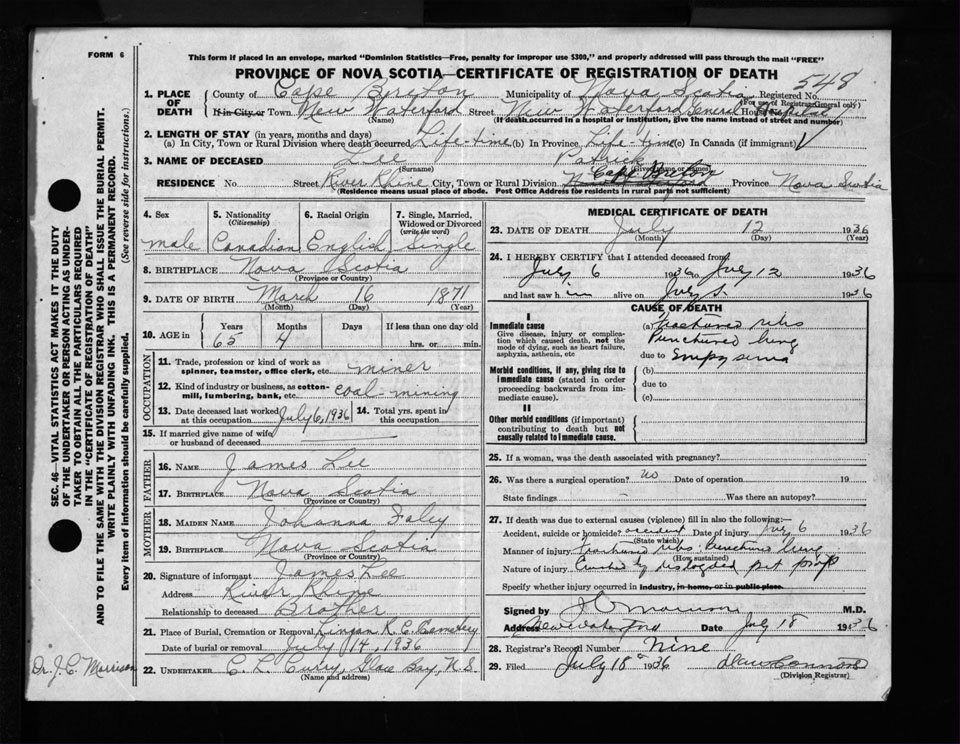 FORM 6
This form if placed in an envelope, marked "Dominion Statistics—Free, penalty for improper use $300," and properly addressed will pass through the mail "FREE"
PROVINCE OF NOVA SCOTIA—CERTIFICATE OF REGISTRATION OF DEATH
548
1. PLACE OF DEATH
County of Cape Breton Municipality of Nova Scotia Registered No.
(For use of Registrar General only)
If in City or Town New Waterford Street New Waterford General Hospital House
(Name) (If death occurred in a hospital or institution, give the name instead of street and number)
2. LENGTH OF STAY (in years, months and days)
(a) In City, Town or Rural Division where death occurred Life-time (b) In Province Life-time (c) In Canada (if immigrant)
3. NAME OF DECEASED Lee Patrick
(Surname) (Given name or names)
Cape Breton
RESIDENCE No. Street River Rhine City, Town or Rural Division New Waterford Province Nova Scotia
(Residence means usual place of abode. Post Office Address for residents in rural parts not sufficient)
4. Sex 5. Nationality (Citizenship) 6. Racial Origin 7. Single, Married, Widowed or Divorced (write the word)
male Canadian English Single
8. BIRTHPLACE Nova Scotia
(Province or Country)
9. DATE OF BIRTH March 16 1871
(Month) (Day) (Year)
10. AGE in Years Months Days If less than one day old
65 4 hrs. or min.
OCCUPATION
11. Trade, profession or kind of work as spinner, teamster, office clerk, etc. miner
12. Kind of industry or business, as cotton-mill, lumbering, bank, etc. coal-mining
13. Date deceased last worked at this occupation July 6, 1936 14. Total yrs. spent in this occupation
15. If married give name of wife or husband of deceased
FATHER
16. NAME James Lee
17. BIRTHPLACE Nova Scotia
(Province or Country)
MOTHER
18. MAIDEN NAME Johanna Foley
19. BIRTHPLACE Nova Scotia
(Province or Country)
20. Signature of informant James Lee
Address River Rhine
Relationship to deceased Brother
21. Place of Burial, Cremation or Removal Lingan R. C. Cemetery
Date of burial or removal July 14, 1936
22. UNDERTAKER C. L. Curry, Glace Bay, N.S.
(Name and address)
MEDICAL CERTIFICATE OF DEATH
23. DATE OF DEATH July 12 1936
(Month) (Day) (Year)
24. I HEREBY CERTIFY that I attended deceased from
July 6 1936 to July 12 1936
and last saw him alive on July 1936
CAUSE OF DEATH
I
Immediate cause
Give disease, injury or complication which caused death, not the mode of dying, such as heart failure, asphyxia, asthenia, etc
(a) Fractured ribs
Punctured lung
due to Empysema
Morbid conditions, if any, giving rise to immediate cause (stated in order proceeding backwards from immediate cause).
(b)
due to
(c)
II
Other morbid conditions (if important) contributing to death but not causally related to immediate cause.
25. If a woman, was the death associated with pregnancy?
26. Was there a surgical operation? no Date of operation 19
State findings - Was there an autopsy?
27. If death was due to external causes (violence) fill in also the following:—
Accident, suicide or homicide? accident Date of injury July 6 1936
(State which)
Manner of injury Fractured ribs. Punctured lung
(How sustained)
Nature of injury Crushed by dislodged pit prop
Specify whether injury occurred in Industry, in home, or in public place.
Signed by J C Morrison M.D.
Address New Waterford Date July 18 1936
28. Registrar's Record Number Nine
29. Filed July 18 1936
(Division Registrar)
SEC. 46—VITAL STATISTICS ACT MAKES IT THE DUTY
OF THE UNDERTAKER OR PERSON ACTING AS UNDER-
TAKER TO OBTAIN ALL THE PARTICULARS REQUIRED
IN THE "CERTIFICATE OF REGISTRATION OF DEATH"
AND TO FILE THE SAME WITH THE DIVISION REGISTRAR WHO SHALL ISSUE THE BURIAL PERMIT.
WRITE PLAINLY WITH UNFADING INK. THIS IS A PERMANENT RECORD.
Every item of information should be carefully supplied. (See reverse side for instructions.)
Dr. J. C. Morrison